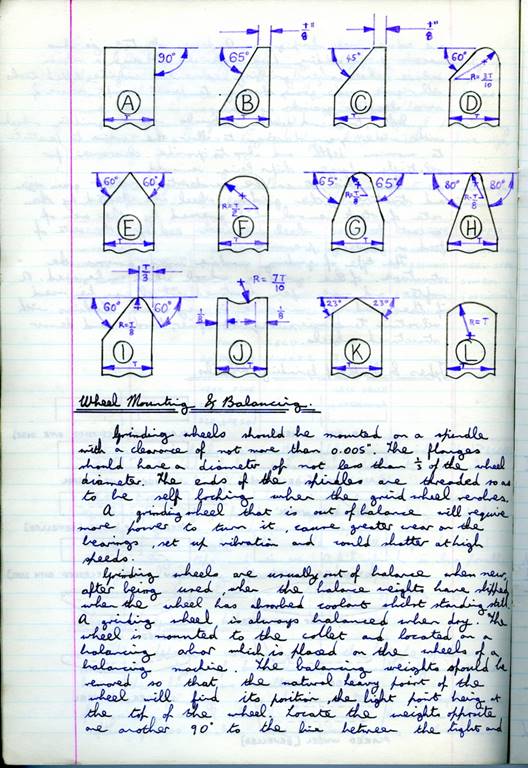 1"/8 1"/8
90° 65° 45° 60°
R=3T/10
A B C D
T T T T
60° 60° 65° 65° 80° 80°
R=T/2 R=T/8 R=T/8
E F G H
T T T T
T/3 R=7T/10
60° 60° 23° 23°
R=T/8 1/8 1/8 R=T
I J K L
T T T T
Wheel Mounting & Balancing.
Grinding wheels should be mounted on a spindle
with a clearance of not more than 0.005". The flanges
should have a diameter of not less than ⅓ of the wheel
diameter. The ends of the spindles are threaded so as
to be self locking when the grind wheel revolves.
A grinding wheel that is out of balance will require
more power to turn it, cause greater wear on the
bearings, set up vibration and could shatter at high
speeds.
Grinding wheels are usually out of balance when new,
after being used, when the balance weights have slipped
when the wheel has absorbed coolant whilst standing still
A grinding wheel is always balanced when dry. The
wheel is mounted to the collet and located on a
balancing arbor which is placed on the wheels of a
balancing machine. The balancing weights should be
removed so that the natural heavy point of the
wheel will find its position, the light point being at
the top of the wheel. Locate the weights opposite
one another 90° to the line between the light and